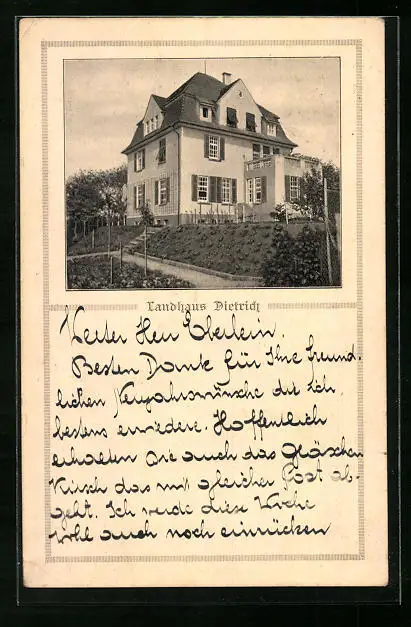 Landhaus Dietrich
Werter Herr Eberlein
Besten Dank für Ihre freund-
lichen Neujahrswünsche die ich
bestens erwiedere. Hoffentlich
erhalten Sie auch das Gläschen
Kirsch das mit gleicher Post ab-
geht. Ich werde diese Woche
wohl auch noch einrücken